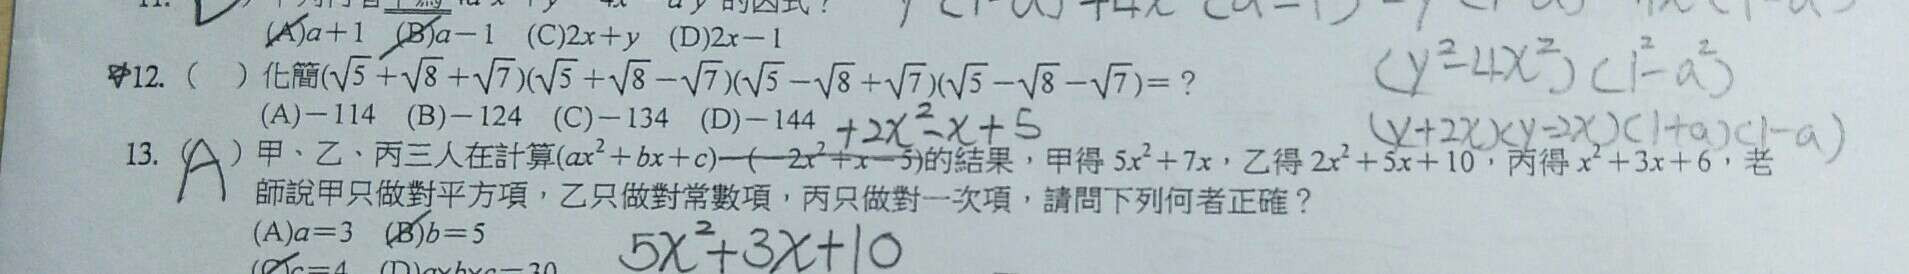 (A)a+1 (B)a−1 (C)2x+y (D)2x−1
(y²−4x²)(1²−a²)
12. ( ) 化簡(√5+√8+√7)(√5+√8−√7)(√5−√8+√7)(√5−√8−√7)=?
(A)−114 (B)−124 (C)−134 (D)−144
+2x²−x+5
(y+2x)(y−2x)(1+a)(1−a)
13. (A) 甲、乙、丙三人在計算(ax²+bx+c)−(−2x²+x−5)的結果,甲得 5x²+7x,乙得 2x²+5x+10,丙得 x²+3x+6,老
師說甲只做對平方項,乙只做對常數項,丙只做對一次項,請問下列何者正確?
(A)a=3 (B)b=5
5x²+3x+10
(C)c=4